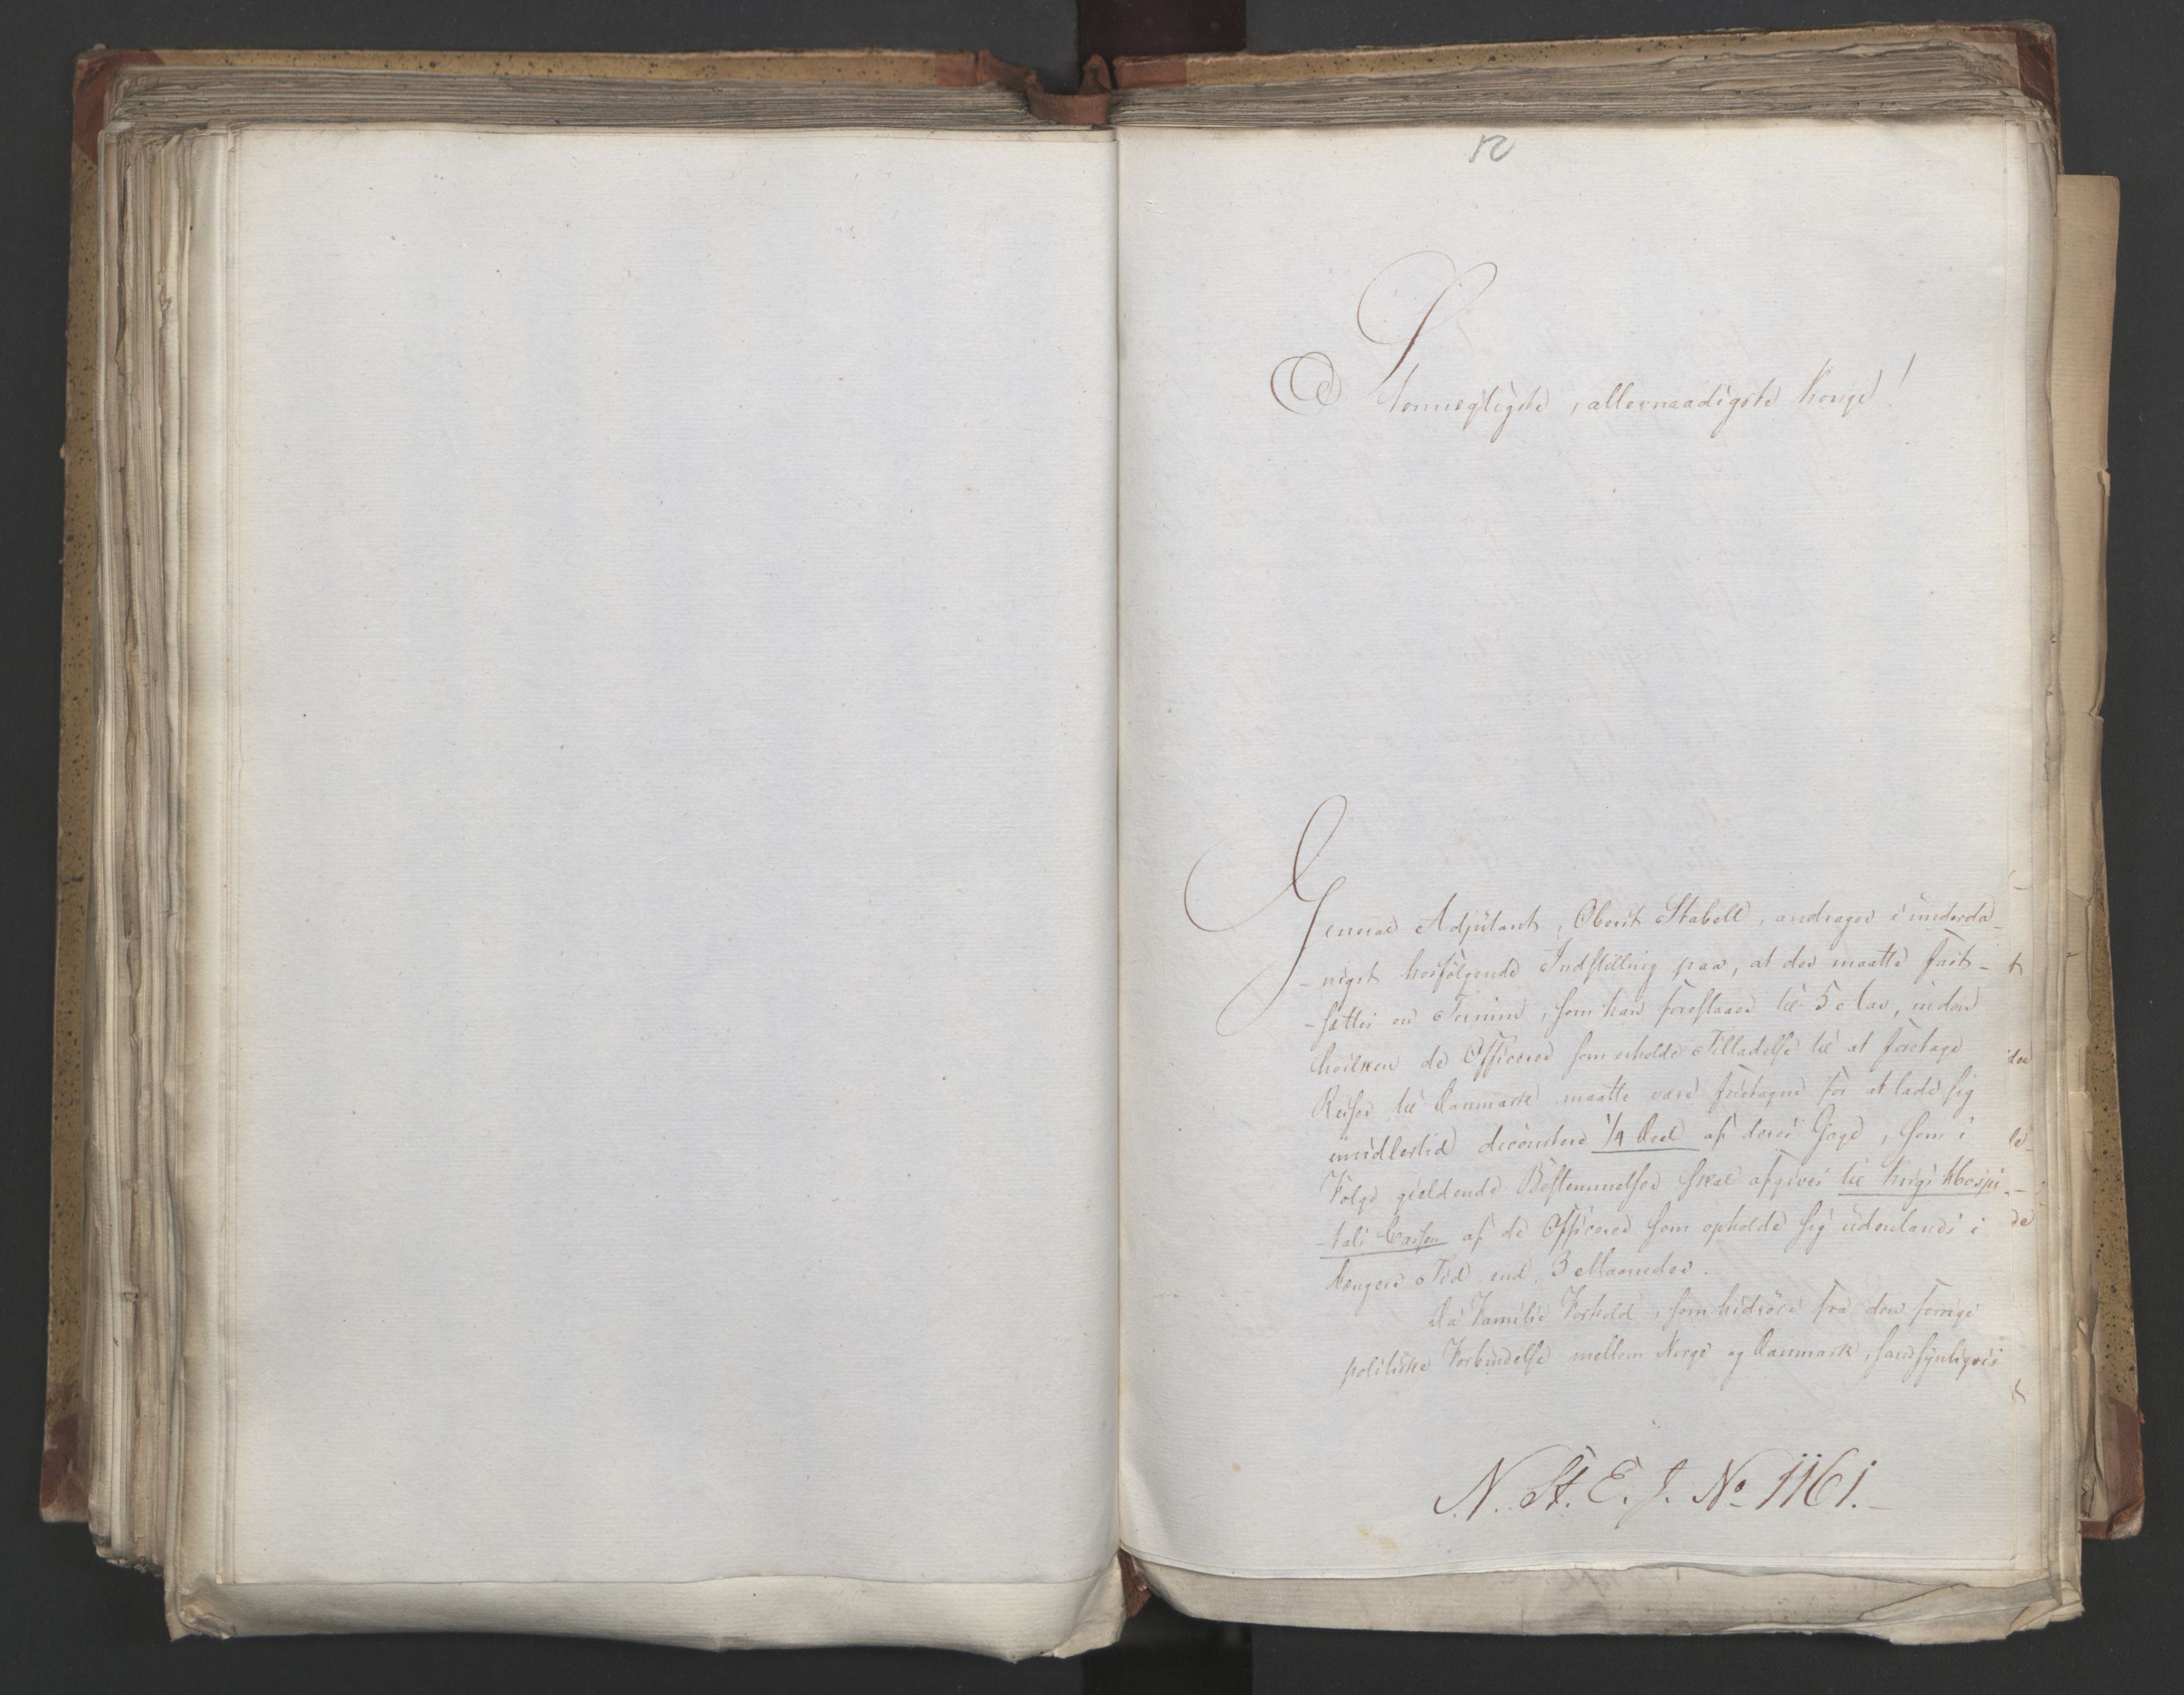 12
Stormægtigste, allernaadigste Konge!
General Adjutant, Oberst Stabell, andrager i underda-
-nigst hosfølgende Indstilling paa, at der maatte fast-
-sættes en Termin, som han foreslaaer til 5 Aar, inden
hvilken de Officerer som erholde Tilladelse til at foretage
Reiser til Danmark maatte være fritagne for at lade sig
imidlertid decourtere 1/4 Deel af deres Gage, som i
Følge gieldende Bestemmelser skal afgives til Krigs Hospi-
-tals Cassen af de Officerer som opholde sig udenlands i
længere Tid end 3 Maaneder.
Da Familie Forhold, som hidrøre fra den forrige
politiske Forbindelse mellem Norge og Danmark, sandsynligviis
N. St. E. J. No 1161.-